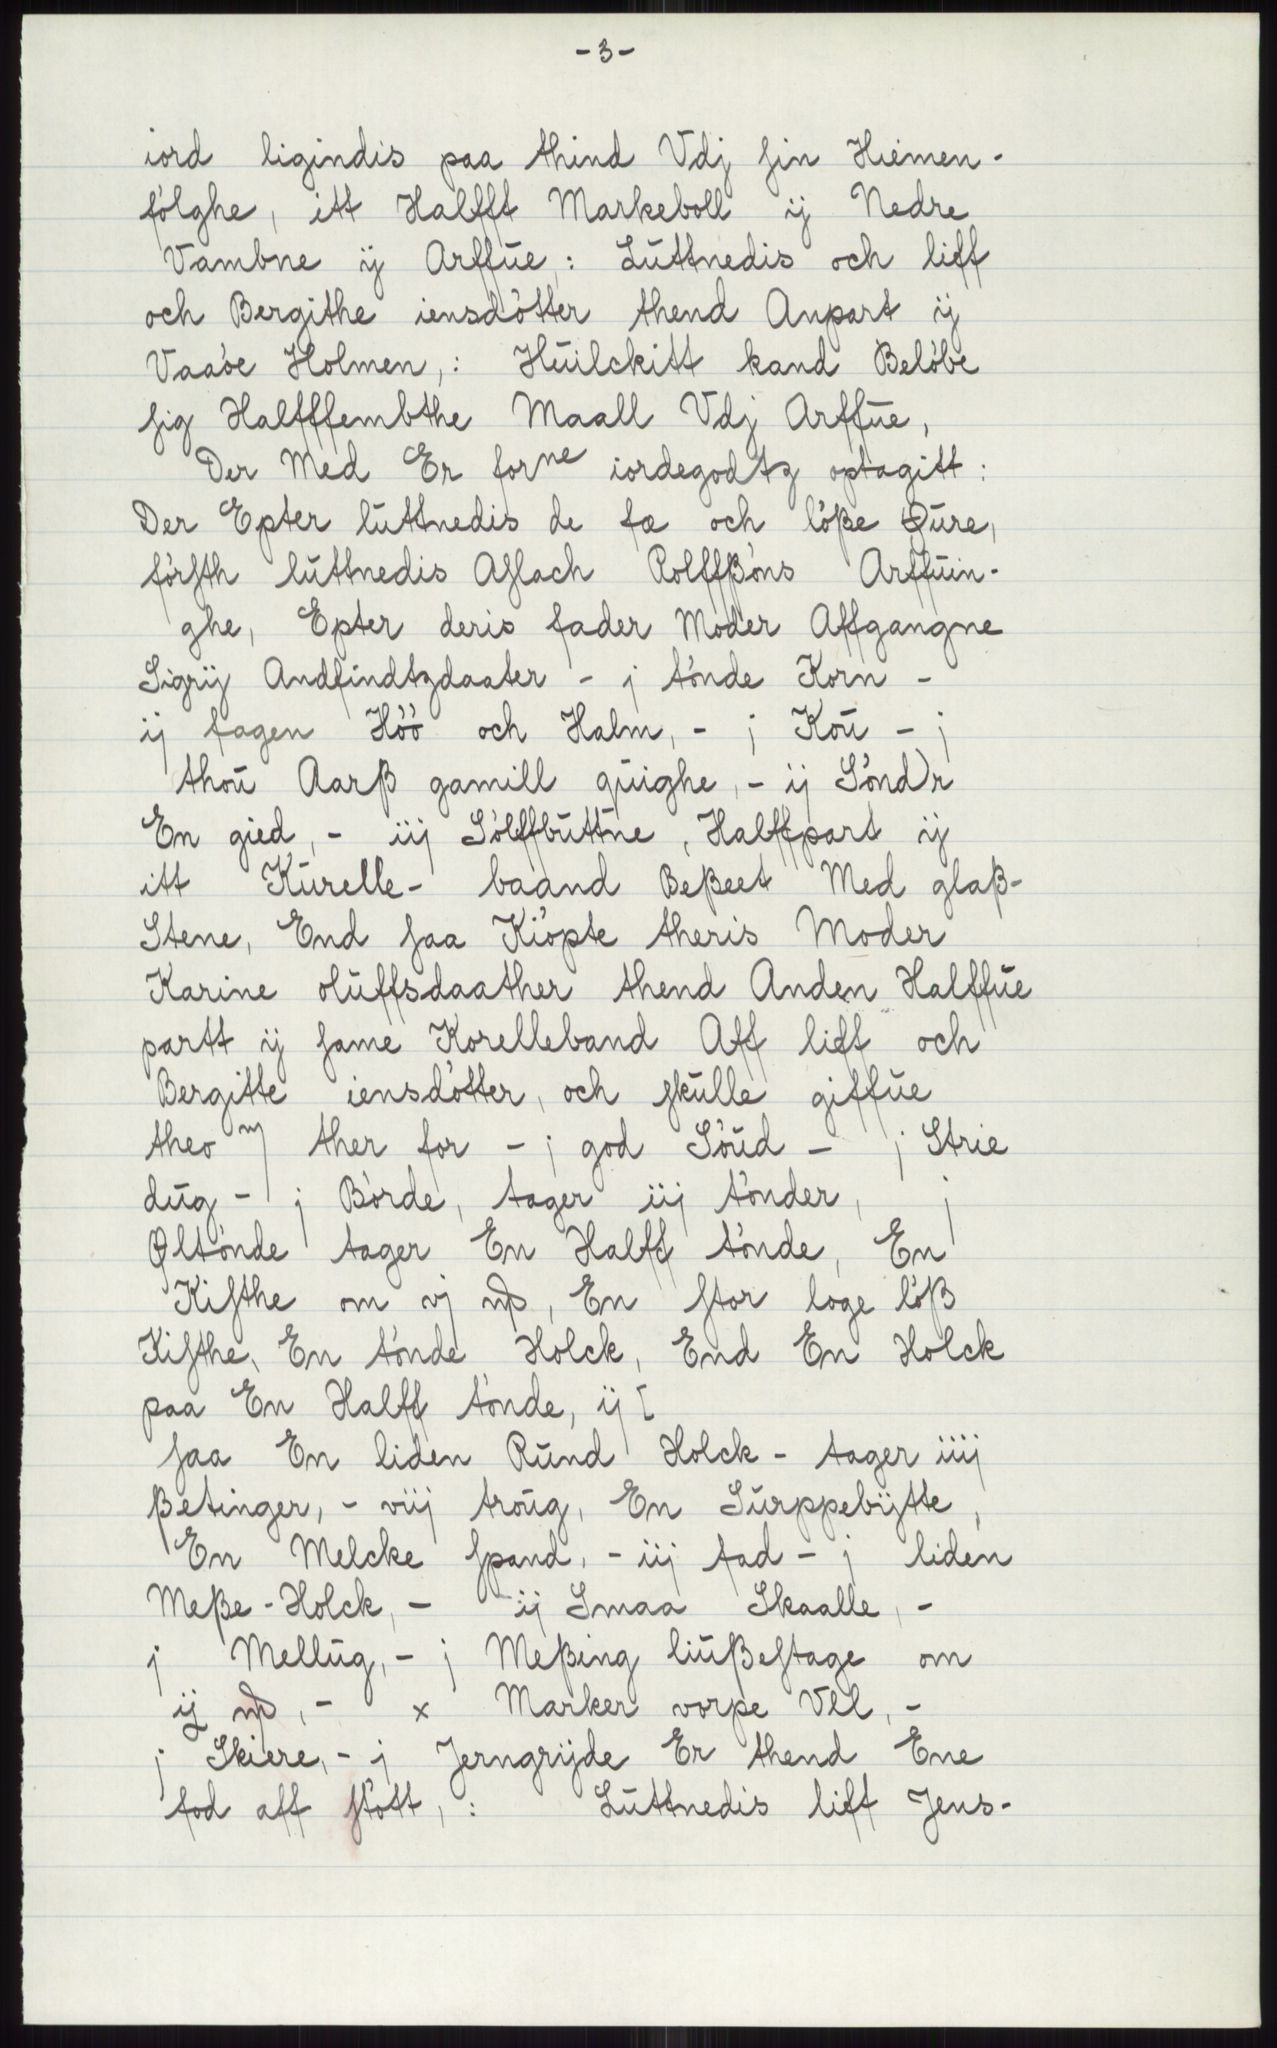 - 3 -
iord ligindis paa thind Vdj sin Hiemen-
fölghe, itt Halfft Markeboll ij Nedre
Vambne ij Arffue,: Luttnedis och lieff
och Bergithe iensdötter thend Anpart ij
Vaaöe Holmen,: Huilckitt kand Belöbe
sig Halffffembthe Maall Vdj Arffue,
Der Med Er forne iordegodtz optagitt:
Der Epter luttnedis de fæ och lösze Öure,
försth luttnedis Aslach Rolffßöns Arffuin-
ghe, Epter deris fader Moder Affgangne
Sigrij Andfindtzdaater - j tönde Korn -
ij fagen Höö och Halm, - j Kou - j
thou Aarß gamill quighe, - ij Söndr
En gied, - iij Sölffbuttne, Halffpart ij
itt Kurelle- baand Beßeet Med glaß-
Stene, End saa Kiöpte theris Moder
Karine oluffsdaather thend Anden Halffue
partt ij same Korelleband Aff lieff och
Bergitte iensdötter, och skulle giffue
theo m ther for - j god Söud - j Strie
dug - j Börde, tager iij tönder, j
Øltönde tager En Halff tönde, En
Kisthe om vj, En stor loge löß
Kisthe, En tönde Holck, End En Holck
paa En Halff tönde, ij [
saa En liden Rund Holck - tager iiij
ßetinger, - viij troug, En Surppebytte,
En Melcke spand, - iij fad - j liden
Meße-Holck, - ij Smaa Skaalle, -
j Mellug, - j Meßing liußestage om
ij, - x Marker vorpe Vll, -
j Skiere, - j Jerngrijde Er thend Ene
fod aff stött,: Luttnedis lieff Jens-